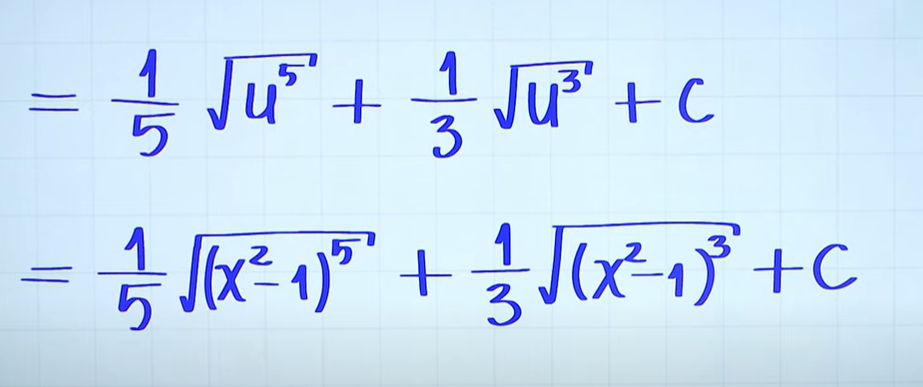 = 1/5 √u⁵ + 1/3 √u³ + C
= 1/5 √(x²-1)⁵ + 1/3 √(x²-1)³ + C